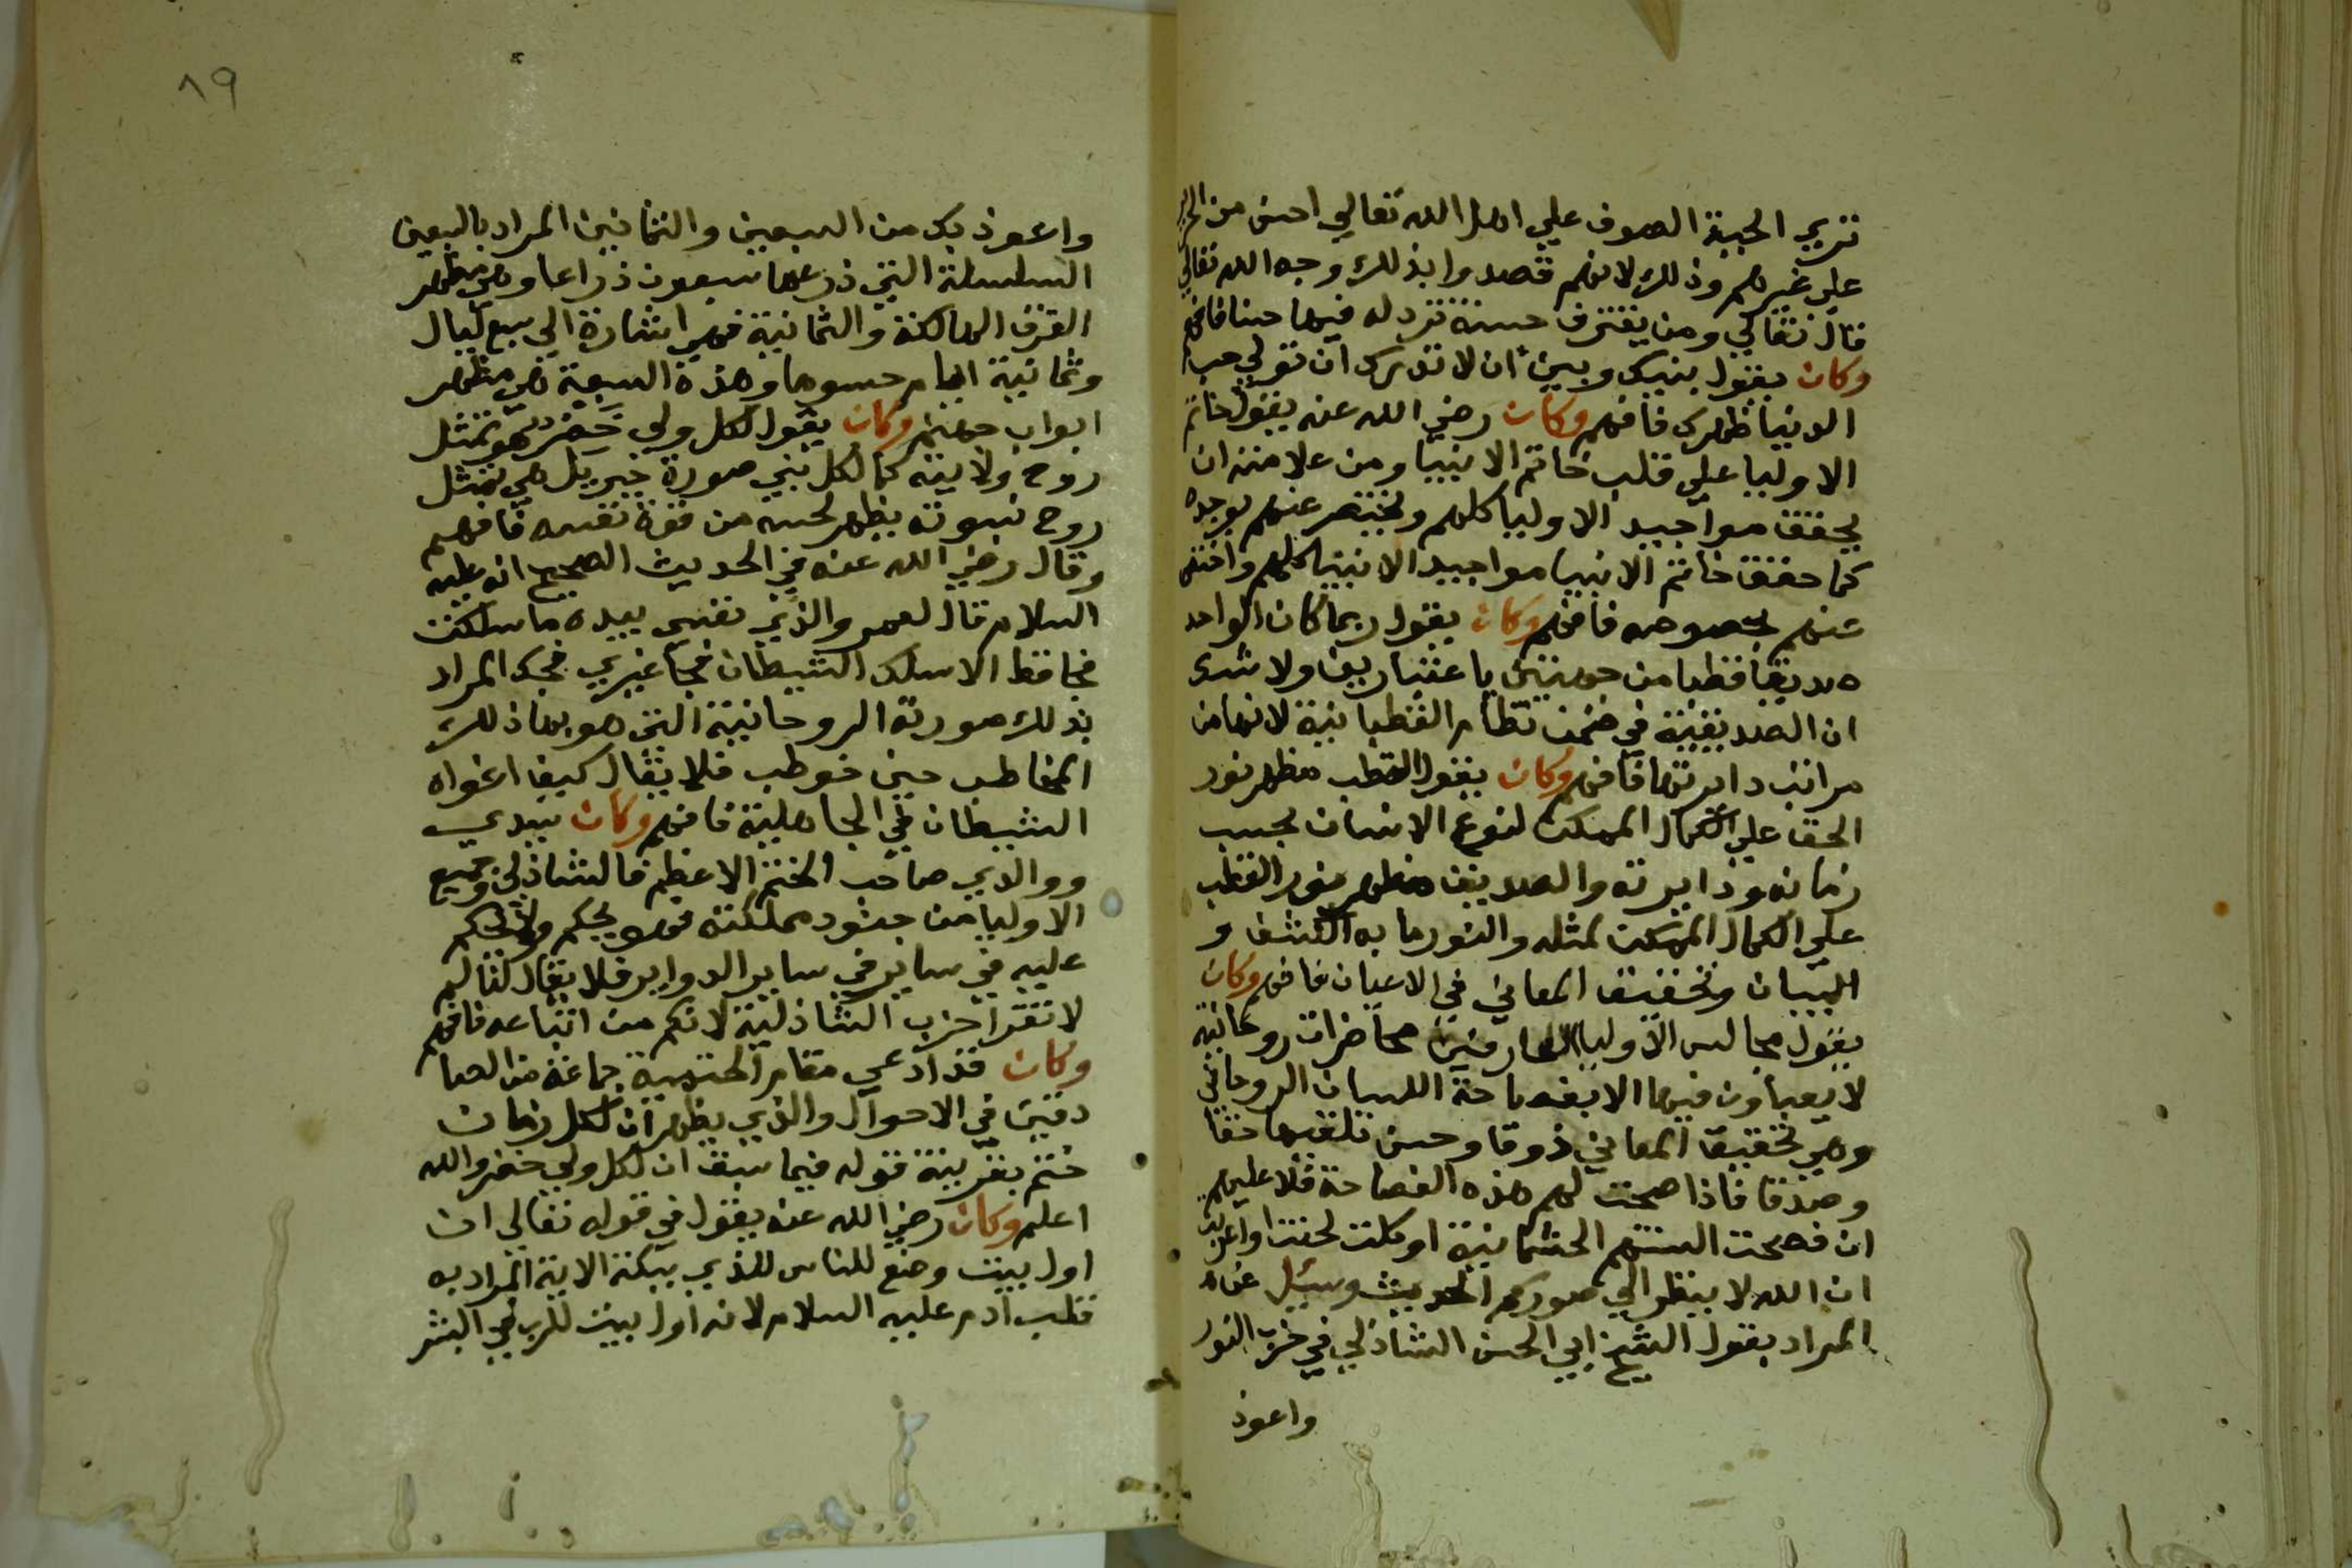 تري الجبة الصوف علي اهل الله تعالي احسن من الحرير
علي غيرهم وذلك لانهم قصدوا بذلك وجه الله تعالي
قال تعالي ومن يقترف حسنة نزد له فيها حسنا فافهم
وكان يقول بنيك وبين ان لا تدرك ان تولي حب
الدنيا ظهرك فافهم وكان رضي الله عنه يقول خاتم
الاوليا علي قلب خاتم الانبيا ومن علامته ان
يحقق مواجيد الاوليا كلهم ويختص عنهم بوجده
كما حقق خاتم الانبيا مواجيد الانبيا كلهم واختص
عنهم بخصوصه فافهم وكان يقول ربما كان الواحد
صديقا قطبا من جهتين باعتبارين ولا شك
ان الصديقية في ضمن نظام القطبانية لانها من
مراتب دايرتها فافهم وكان يقول القطب مظهر نور
الحق علي الكمال الممكن لنوع الانسان بحسب
زمانه ودايرته والصديق مظهر نور القطب
علي الكمال الممكن لمثله والنور ما به الكشف و
البيان وتحقيق المعاني في الاعيان فافهم وكان
يقول مجالس الاوليا العارفين محاضرات روحانية
لا يعباون فيها الا بفصاحة اللسان الروحاني
وهي تحقيق المعاني ذوقا وحسن تلقيها حقا
وصدقا فاذا صحت لهم هذه الفصاحة فلا عليهم
ان فصحت السنتهم الجثمانية او كلت لحنت او اعربت
ان الله لا ينظر الي صوركم الحديث وسيل عن
المراد بقول الشيخ ابي الحسن الشاذلي في حزب النور
واعوذ
٨٩
واعوذ بك من السبعين والثمانين المراد بالسبعين
السلسلة التي ذرعها سبعون ذراعا وهي مظهر
الفرق الهالكة والثمانية فهي اشارة الي سبع ليال
وثمانية ايام حسوما وهذه السبعة هي مظهر
ابواب جهنم وكان يقول لكل ولي خضر هو تمثل
روح ولايته كما لكل نبي صورة جبريل هي تمثل
روح نبوته يظهر لحسه من قوة نفسه فافهم
وقال رضي الله عنه في الحديث الصحيح انه عليه
السلام قال لعمر والذي نفسي بيده ما سلكت
فجا قط الا سلك الشيطان فجا غيري فجك المراد
بذلك صورته الروحانية التي هو بها ذلك
المخاطب حين خوطب فلا يقال كيف اغواه
الشيطان في الجاهلية فافهم وكان سيدي
ووالدي صاحب الختم الاعظم فالشاذلي وجميع
الاوليا من جنود مملكته فهو يحكم ولا يحكم
عليه في ساير في ساير الدواير فلا يقال لنا لم
لا تقرا حزب الشاذلية لانكم من اتباعه فافهم
وكان قد ادعي مقام الختمية جماعة من الصا
دقين في الاحوال والذي يظهر ان لكل زمان
ختم بقرينة قوله فيما سبق ان لكل ولي خضر والله
اعلم وكان رضي الله عنه يقول في قوله تعالي ان
اول بيت وضع للناس للذي ببكة الاية المراد به
قلب ادم عليه السلام لانه اول بيت للرب في البشر